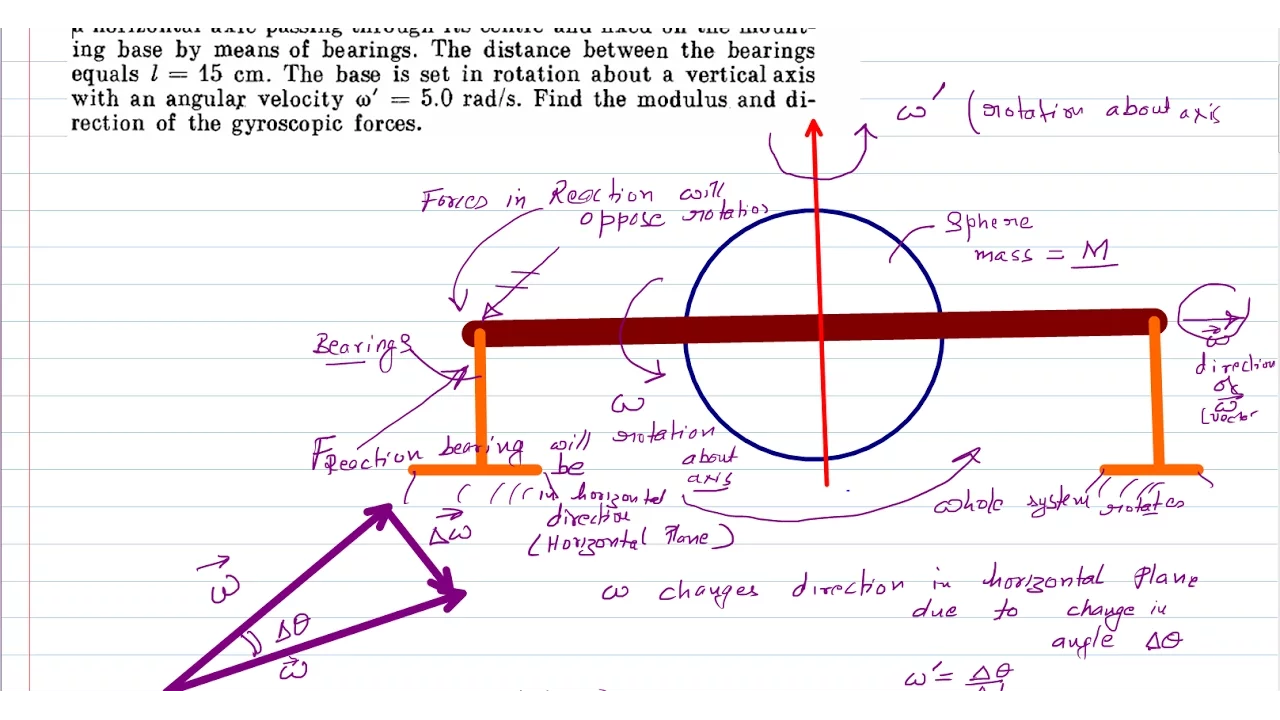 a horizontal axis passing through its centre and fixed on the mount-
ing base by means of bearings. The distance between the bearings
equals l = 15 cm. The base is set in rotation about a vertical axis
with an angular velocity ω′ = 5.0 rad/s. Find the modulus and di-
rection of the gyroscopic forces.
ω′ (rotation about axis
Forces in Reaction will
oppose rotation
Sphere
mass = M
Bearings
ω
direction
of
ω
ω
rotation
about
axis
F Reaction bearing will
be
in horizontal
direction
(Horizontal Plane)
whole system rotates
Δω
ω
Δθ
ω
ω changes direction in horizontal Plane
due to change in
angle Δθ
ω′ = Δθ